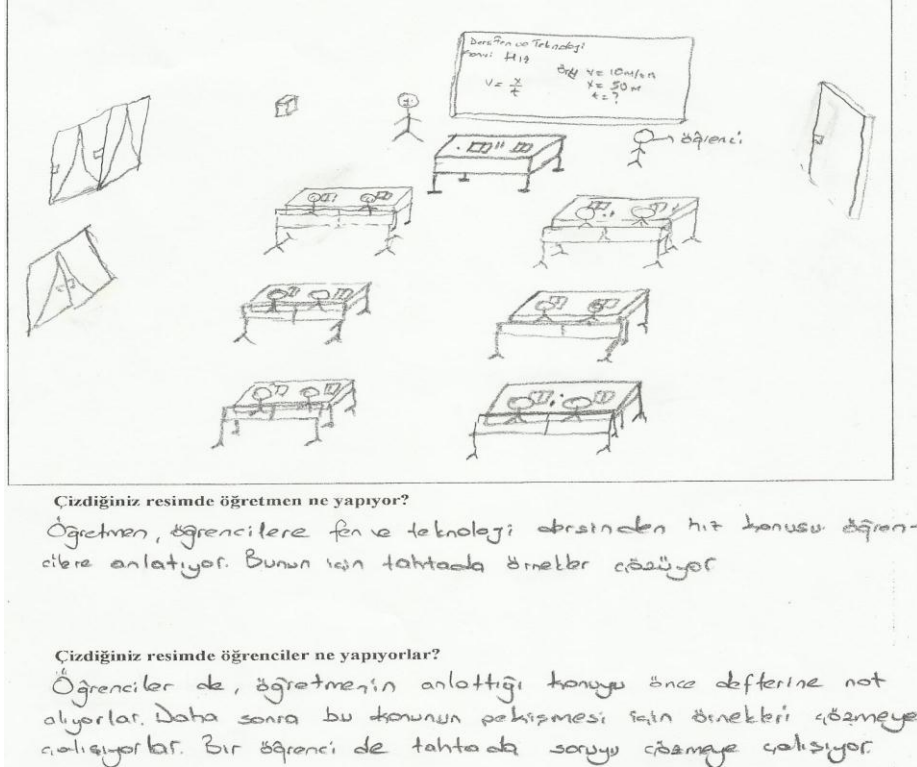 Ders: Fen ve Teknoloji
Konu: Hız
Örn/ v = 10 m/sn
v = x/t
x = 50 m
t = ?
öğrenci
Çizdiğiniz resimde öğretmen ne yapıyor?
Öğretmen, öğrencilere fen ve teknoloji dersinden hız konusu öğren-
cilere anlatıyor. Bunun için tahtada örnekler çözüyor
Çizdiğiniz resimde öğrenciler ne yapıyorlar?
Öğrenciler de, öğretmenin anlattığı konuyu önce defterine not
alıyorlar. Daha sonra bu konunun pekişmesi için örnekleri çözmeye
çalışıyorlar. Bir öğrenci de tahtada soruyu çözmeye çalışıyor.